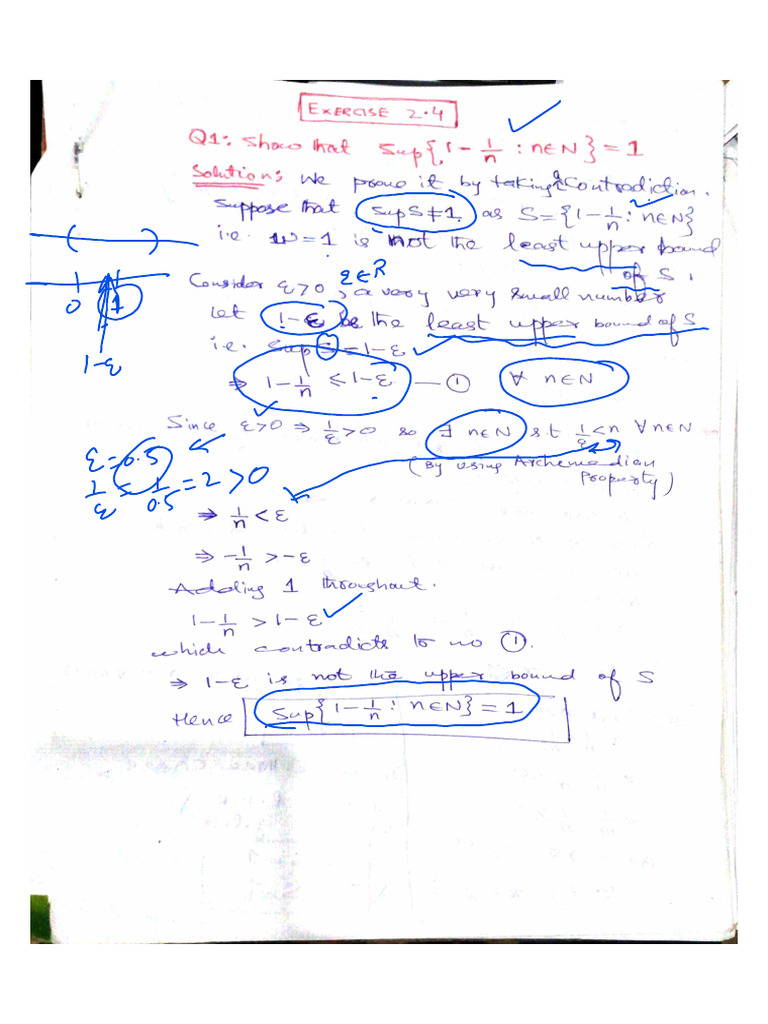 EXERCISE 2.4
Q1: Show that Sup{1 - 1/n : n∈N} = 1
Solution: We prove it by taking a contradiction.
Suppose that Sup S ≠ 1 as S = {1 - 1/n : n∈N}
i.e. = 1 is not the least upper bound
of S.
Consider ε>0, a very very small number
ε∈R
Let 1-ε be the least upper bound of S
i.e. Sup S = 1-ε
⇒ 1 - 1/n ≤ 1-ε — ① ∀ n∈N
0 1
1-ε
Since ε>0 ⇒ 1/ε >0 so ∃ n∈N s.t 1/ε < n ∀ n∈N
(By using Archemedian
Property)
ε = 0.5
1/ε = 1/0.5 = 2 > 0
⇒ 1/n < ε
⇒ -1/n > -ε
Adding 1 throughout.
1 - 1/n > 1-ε
which contradicts to no ①.
⇒ 1-ε is not the upper bound of S
Hence Sup{1 - 1/n : n∈N} = 1